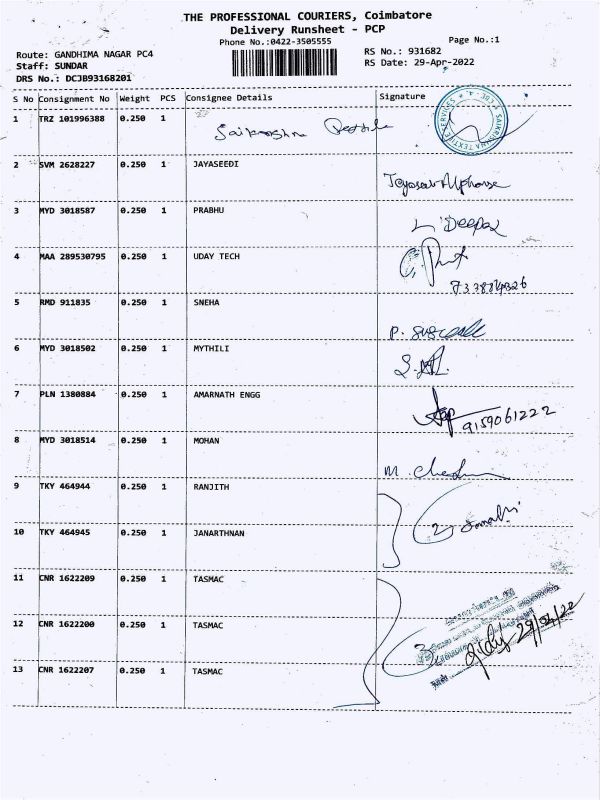 THE PROFESSIONAL COURIERS, Coimbatore
Delivery Runsheet - PCP
Phone No.:0422-3505555
Page No.:1
Route: GANDHIMA NAGAR PC4
RS No.: 931682
Staff: SUNDAR
RS Date: 29-Apr-2022
DRS No.: DCJB93168201
S No Consignment No Weight PCS Consignee Details Signature
1 TRZ 101996388 0.250 1
2 SVM 2628227 0.250 1 JAYASEEDI
3 MYD 3018587 0.250 1 PRABHU L. Deepa
4 MAA 289530795 0.250 1 UDAY TECH
5 RMD 911835 0.250 1 SNEHA
6 MYD 3018502 0.250 1 MYTHILI
7 PLN 1380884 0.250 1 AMARNATH ENGG 9159061222
8 MYD 3018514 0.250 1 MOHAN
9 TKY 464944 0.250 1 RANJITH
10 TKY 464945 0.250 1 JANARTHNAN
11 CNR 1622209 0.250 1 TASMAC
12 CNR 1622200 0.250 1 TASMAC 29/04/22
13 CNR 1622207 0.250 1 TASMAC